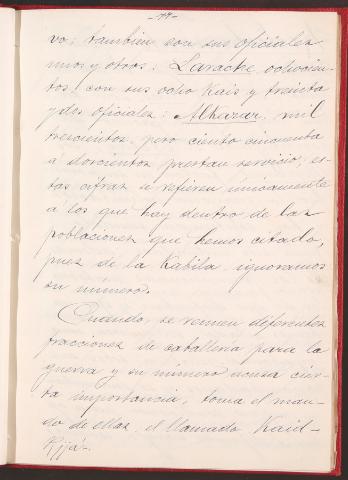 - 14 -
vo; tambien con sus oficiales
unos y otros. Larache, ochocien-
tos, con sus ocho Kais y treinta
y dos oficiales: Alkazar, mil
trescientos, pero ciento cincuenta
á doscientos prestan servicio; es-
tas cifras se refieren unicamente
á los que hay dentro de las
poblaciones que hemos citado,
pues de la Kabila, ignoramos
su número.
Cuando, se reunen diferentes
fracciones de caballeria para la
guerra y su número acusa cier-
ta importancia, toma el man-
do de ellas, el llamado Kaid-
Rjjá.